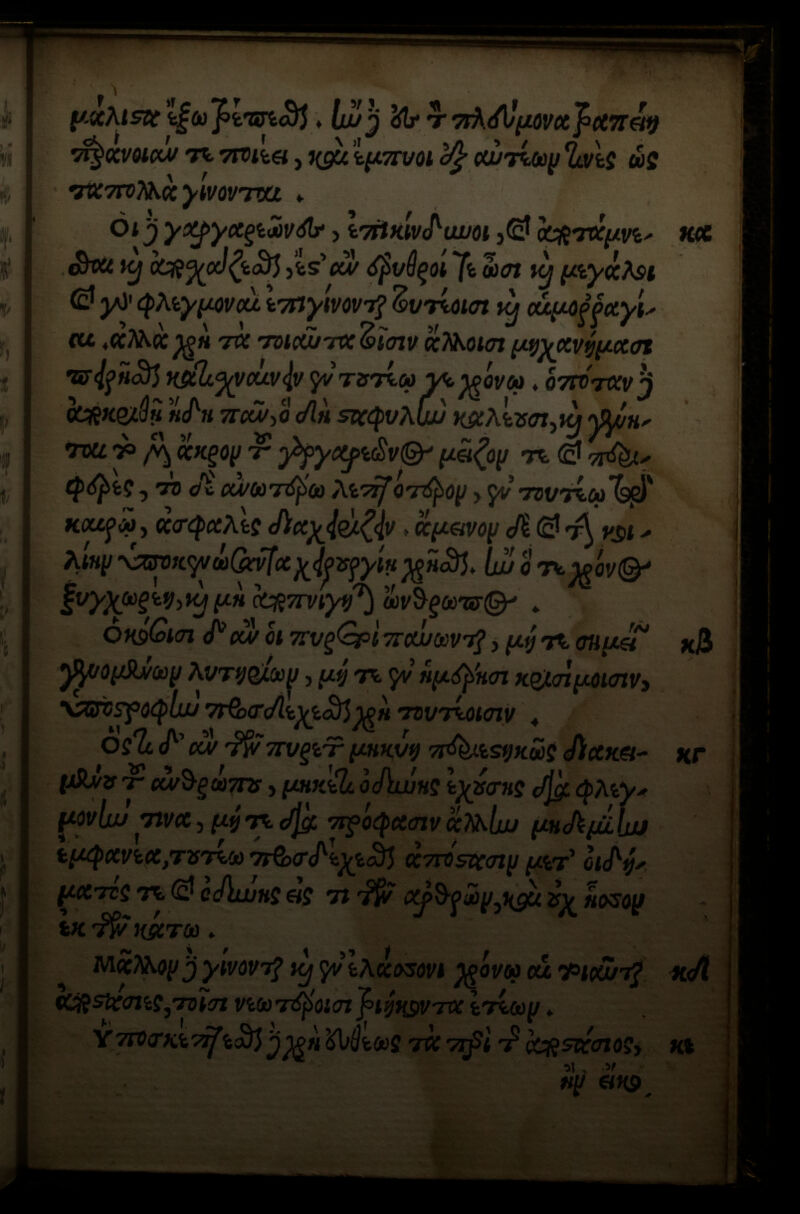 μάλιστα ἔξω ῥέπεσθαι. ἢν δὲ ἐς τὸν πλεύμονα ῥαπείη
παράνοιάν τε ποιέει, καὶ ἔμπυοι ἐξ αὐτέων τινὲς ὡς
ταπολλὰ γίνονται.
Οἱ δὲ γαργαρεῶνες, ἐπικίνδυνοι, καὶ ἀποτάμνε- κα
σθαι καὶ ἀποσχάζεσθαι, ἔς τ' ἂν ἐρυθροί τε ὦσι καὶ μεγάλοι
καὶ γὰρ φλεγμοναὶ ἐπιγίνονται τουτέοισι καὶ αἱμορραγί-
αι. ἀλλὰ χρὴ τὰ τοιαῦτα τοῖσιν ἄλλοισι μηχανήμασι
πειρῆσθαι κατισχναίνειν ἐν τουτέῳ γε χρόνῳ. ὁπόταν δὲ
ἀποκριθῇ ἤδη πᾶν, ὃ δὴ σταφυλὴν καλέουσι, καὶ γένη-
ται τὸ μὲν ἄκρον τοῦ γαργαρεῶνος μεῖζόν τε καὶ περι-
φερὲς, τὸ δὲ ἀνωτέρω λεπτότερον, ἐν τουτέῳ τῷ
καιρῷ, ἀσφαλὲς διαχειρίζειν. ἄμεινον δὲ καὶ τὴν κοι-
λίην ὑποκενώσαντα χειρουργίῃ χρῆσθαι. ἢν ὅ τε χρόνος
ξυγχωρέῃ, καὶ μὴ ἀποπνίγηται ὥνθρωπος.
Ὁκόσοισι δ' ἂν οἱ πυρετοὶ παύωνται, μή τε σημείων κβ
γενομένων λυτηρίων, μή τε ἐν ἡμέρῃσι κρισίμοισιν,
ὑποστροφὴν προσδέχεσθαι χρὴ τουτέοισιν.
Ὅστις δ' ἂν τῶν πυρετῶν μηκύνῃ περιεστηκῶς διακει- κγ
μένου τοῦ ἀνθρώπου, μηκέτι ὀδύνης ἐχούσης διὰ φλεγ-
μονήν τινα, μή τε διὰ πρόφασιν ἄλλην μηδεμίην
ἐμφανέα, τουτέῳ προσδέχεσθαι ἀπόστασιν μετ' οἰδή-
ματός τε καὶ ὀδύνης εἰς τι τῶν ἄρθρων, καὶ οὐχ ἧσσον
ἐκ τῶν κάτω.
Μᾶλλον δὲ γίνονται καὶ ἐν ἐλάσσονι χρόνῳ αἱ τοιαῦται κδ
ἀποστάσιες, τοῖσι νεωτέροισι τριήκοντα ἐτέων.
Ὑποσκέπτεσθαι δὲ χρὴ εὐθέως τὰ περὶ τῆς ἀποστάσιος, κε
ἢν εἴκο-